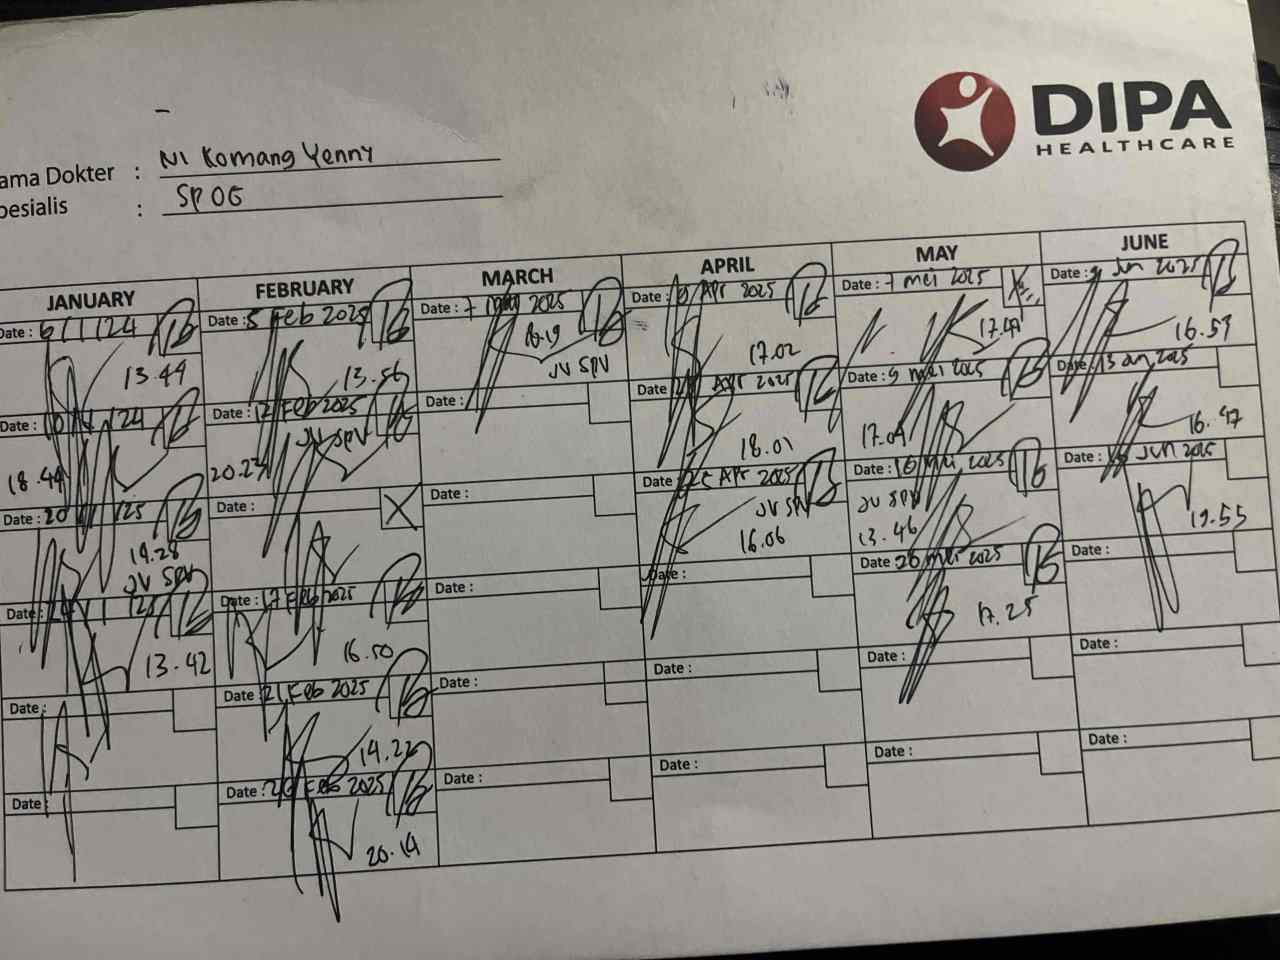 DIPA
HEALTHCARE
ama Dokter : NI Komang Yenny
pesialis : SP OG
JANUARY
Date : 6/1/24
13.49
Date : 10/1/24
18.44
Date : 20/1/25
14.28
JV SPV
Date : /1/25
13.42
Date :
Date
FEBRUARY
Date : 5 Feb 2025
13.56
Date : 12 Feb 2025
JV SPV
20.23
Date :
Date : 17 Feb 2025
16.50
Date : 21 Feb 2025
14.22
Date : 26 Feb 2025
20.14
MARCH
Date : 7 2025
19
JV SPV
Date :
Date :
Date :
Date :
Date :
APRIL
Date : Apr 2025
17.02
Date : Apr 2025
18.01
Date : 25 Apr 2025
JV SPV
16.06
Date :
Date :
Date :
MAY
Date : 7 mei 2025
Date : 9 mei 2025
17.04
Date : 16 Mei 2025
JV SPV
13.46
Date : 26 mei 2025
17.25
Date :
Date :
JUNE
Date : Jun 2025
16.59
Date : 13 2025
16.47
Date : Jun 2025
19.55
Date :
Date :
Date :